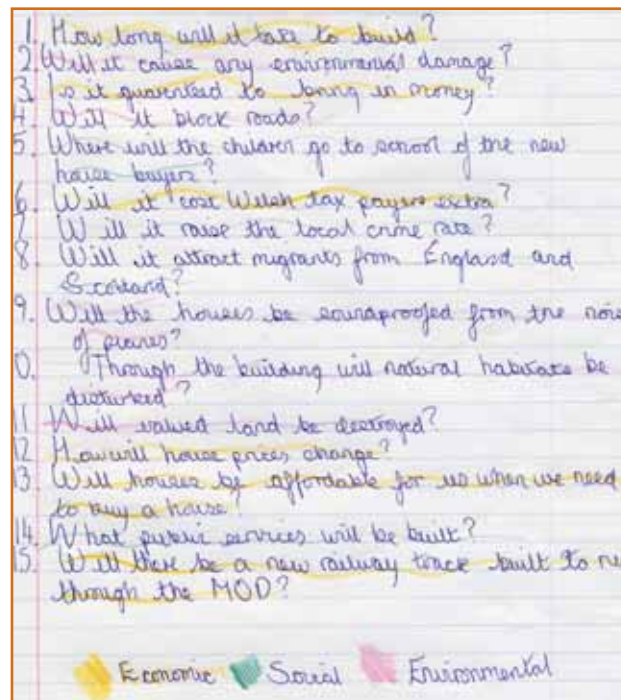 1. How long will it take to build?
2. Will it cause any environmental damage?
3. Is it guarenteed to bring in money?
4. Will it block roads?
5. Where will the children go to school of the new
house buyers?
6. Will it cost Welsh tax payers extra?
7. Will it raise the local crime rate?
8. Will it attract migrants from England and
Scotland?
9. Will the houses be soundproofed from the noise
of planes?
0. Through the building will natural habitats be
disturbed?
11 Will valued land be destroyed?
12 How will house prices change?
13. Will houses be affordable for us when we need
to buy a house?
14. What public services will be built?
15. Will there be a new railway track built to
through the MOD?
Economic Social Environmental